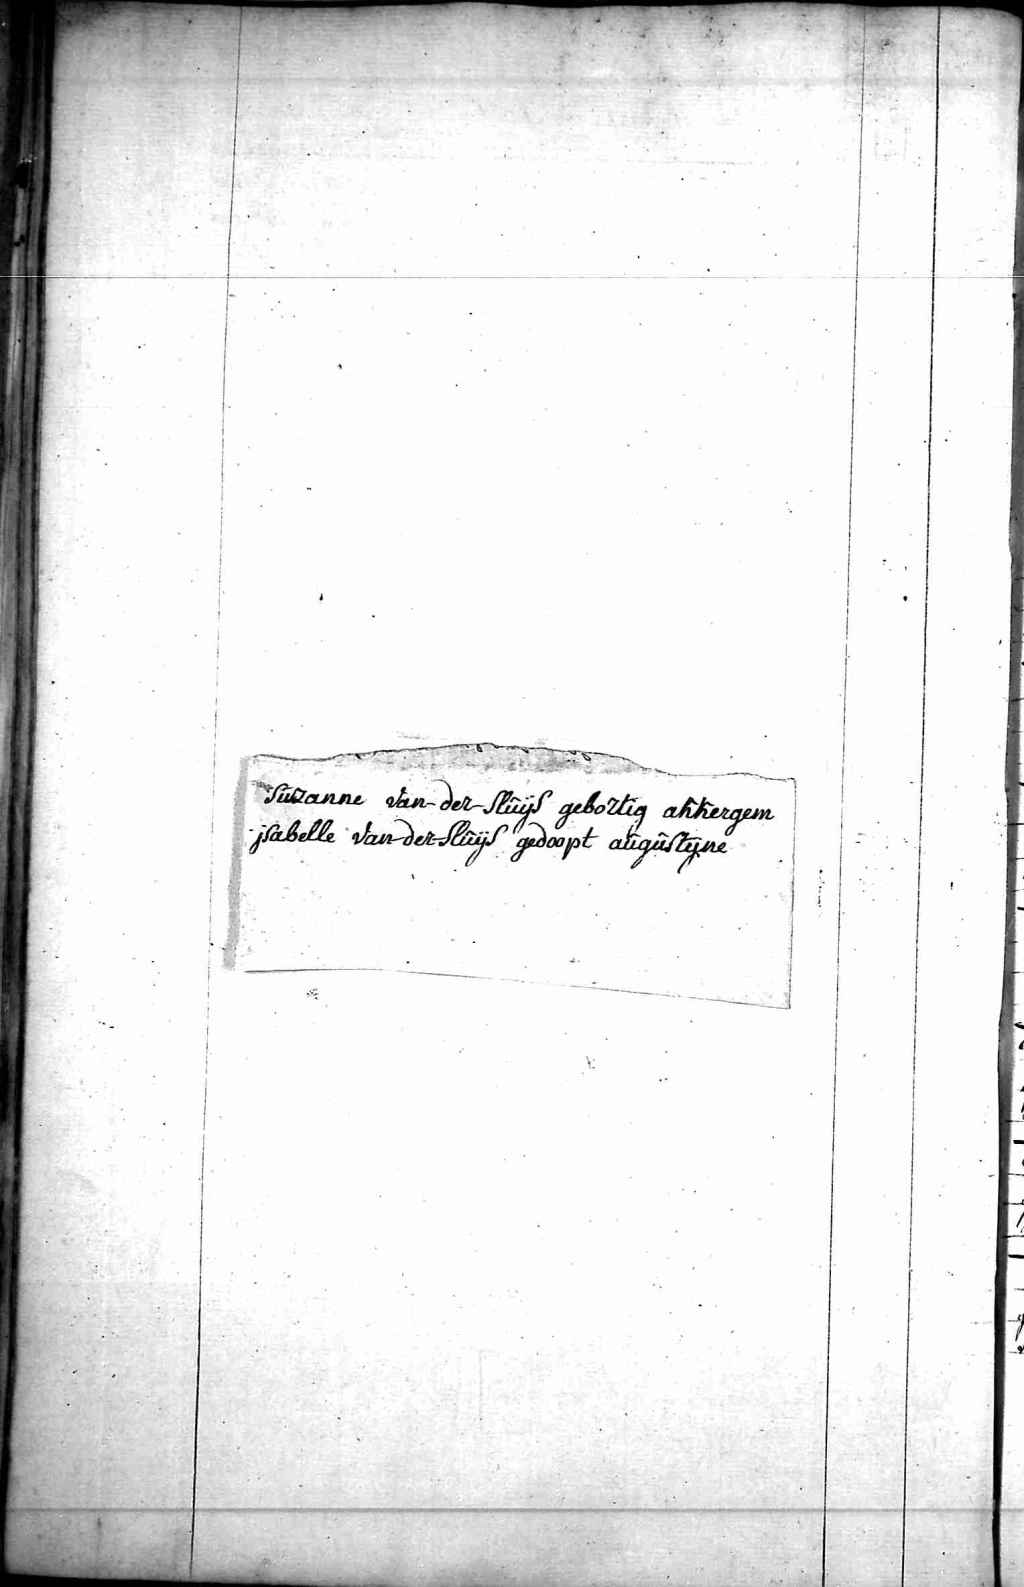 Suzanne van-der-Sluijs gebortig akkergem
jsabelle van-der-Sluijs gedoopt augustyne